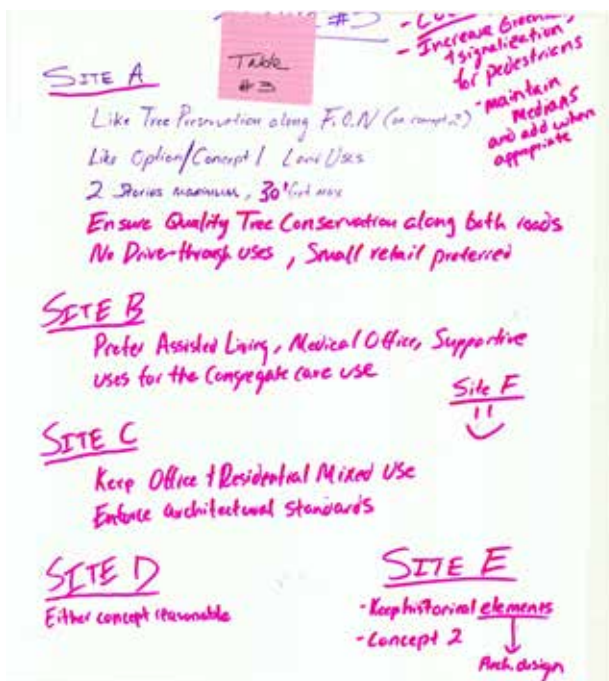 #3
- Increase Green
+ signalization
for pedestrians
- maintain
Medians
and add when
appropriate
Table
#3
SITE A
Like Tree Preservation along F.O.N (on concept 2)
Like Option/Concept 1 Land Uses
2 Stories maximum, 30' feet max
Ensure Quality Tree Conservation along both roads
No Drive-through uses, Small retail preferred
SITE B
Prefer Assisted Living, Medical Office, Supportive
uses for the Congregate care use
Site F
SITE C
Keep Office + Residential Mixed Use
Enforce architectural standards
SITE D
Either concept reasonable
SITE E
- Keep historical elements
- Concept 2
Arch. design